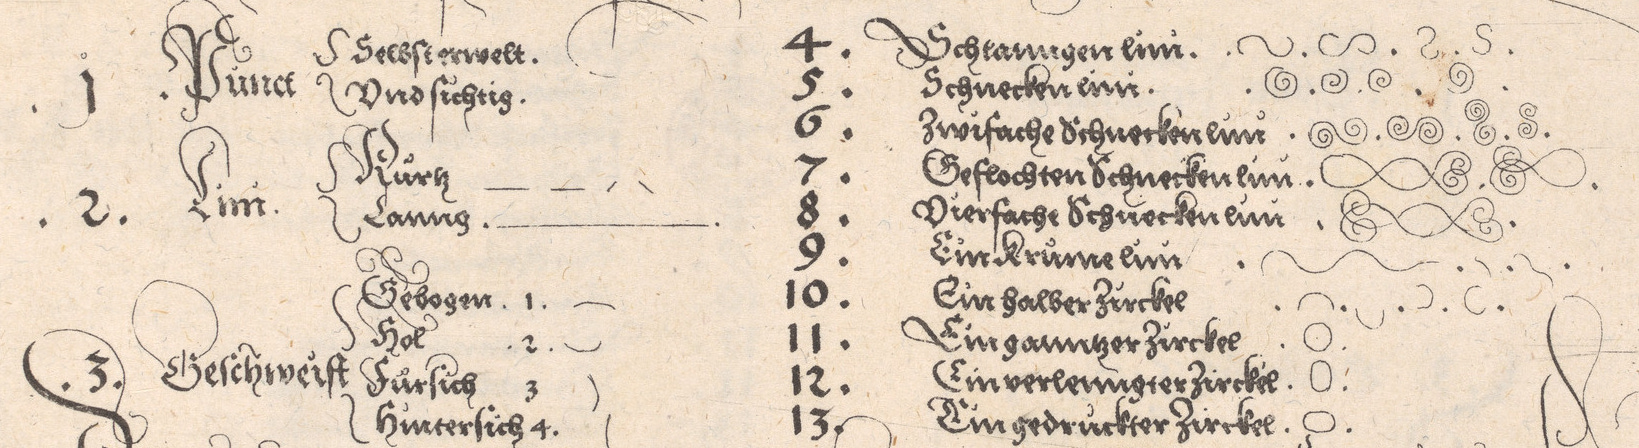 . 1 . Punct Selbst erwelt.
Vnd sichtig.
. 2 . Lini. Kurtz
Lanng.
Gebogen . 1 .
Hol . 2 .
. 3 . Geschweift Fursich 3
Hintersich 4 .
4 . Schlanngen lini .
5 . Schnecken lini .
6 . Zwifache Schnecken lini .
7 . Geflochten Schnecken lini .
8 . Vierfache Schnecken lini .
9 . Ein Krume lini
10 . Ein halber Zirckel
11 . Ein ganntzer Zirckel
12 . Ein verlenngter Zirckel .
13 . Ein gedruckter Zirckel .